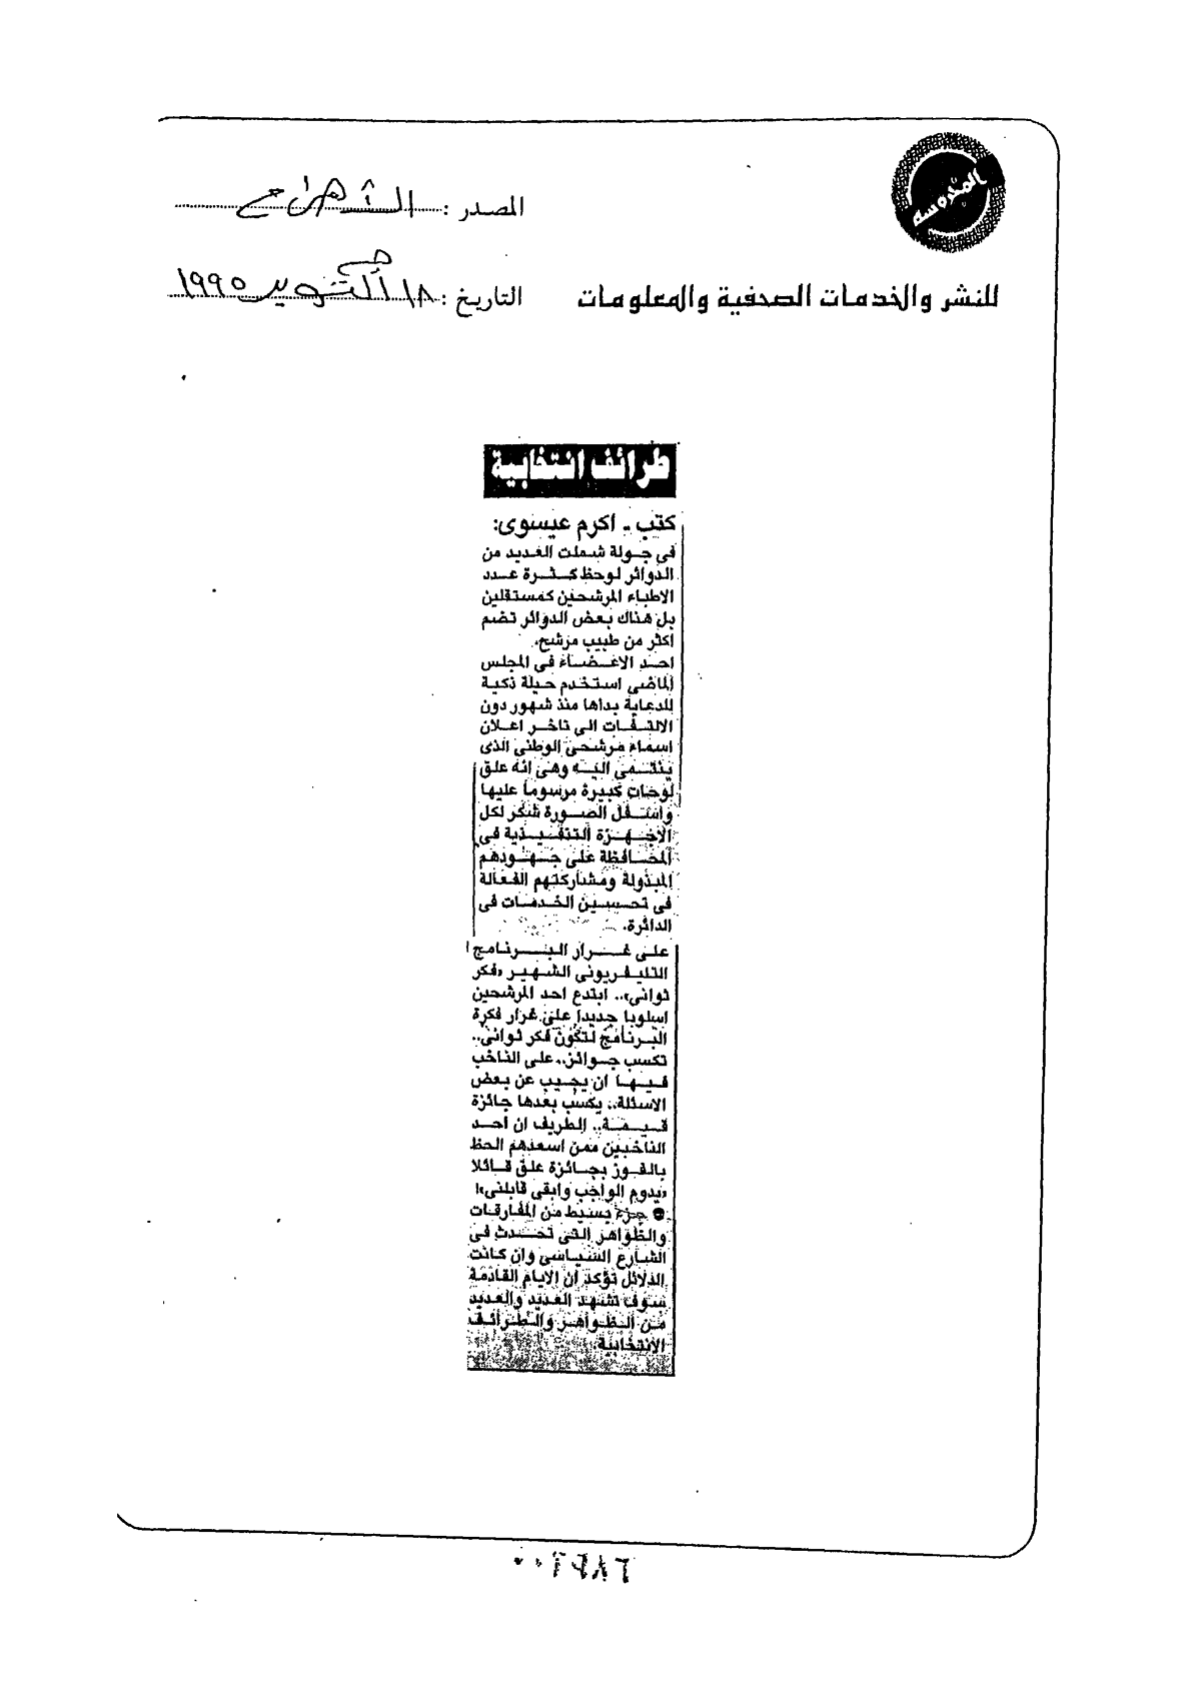 المحروسة
المصدر :
للنشر والخدمات الصحفية والمعلومات
التاريخ : ١٨ أكتوبر ١٩٩٥
طرائف انتخابية
كتب - اكرم عيسوى:
فى جولة شملت العديد من
الدوائر لوحظ كثرة عدد
الاطباء المرشحين كمستقلين
بل هناك بعض الدوائر تضم
اكثر من طبيب مرشح.
احد الاعضاء فى المجلس
الماضى استخدم حيلة ذكية
للدعاية بداها منذ شهور دون
الالتفات الى تاخر اعلان
اسماء مرشحى الوطنى الذى
ينتمى اليه وهى انه علق
لوحات كبيرة مرسوما عليها
واسفل الصورة شكر لكل
الاجهزة التنفيذية فى
المحافظة على جهودهم
المبذولة ومشاركتهم الفعالة
فى تحسين الخدمات فى
الدائرة.
على غرار البرنامج
التليفزيونى الشهير «فكر
ثوانى».. ابتدع احد المرشحين
اسلوبا جديدا على غرار فكرة
البرنامج لتكون فكر ثوانى..
تكسب جوائز.. على الناخب
فيها ان يجيب عن بعض
الاسئلة.. يكسب بعدها جائزة
قيمة.. الطريف ان احد
الناخبين ممن اسعدهم الحظ
بالفوز بجائزة علق قائلا
«يدوم الواجب وابقى قابلنى»!
● جزء بسيط من المفارقات
والظواهر التى تحدث فى
الشارع السياسى وان كانت
الدلائل تؤكد ان الايام القادمة
سوف تشهد العديد والعديد
من الظواهر والطرائف
الانتخابية.